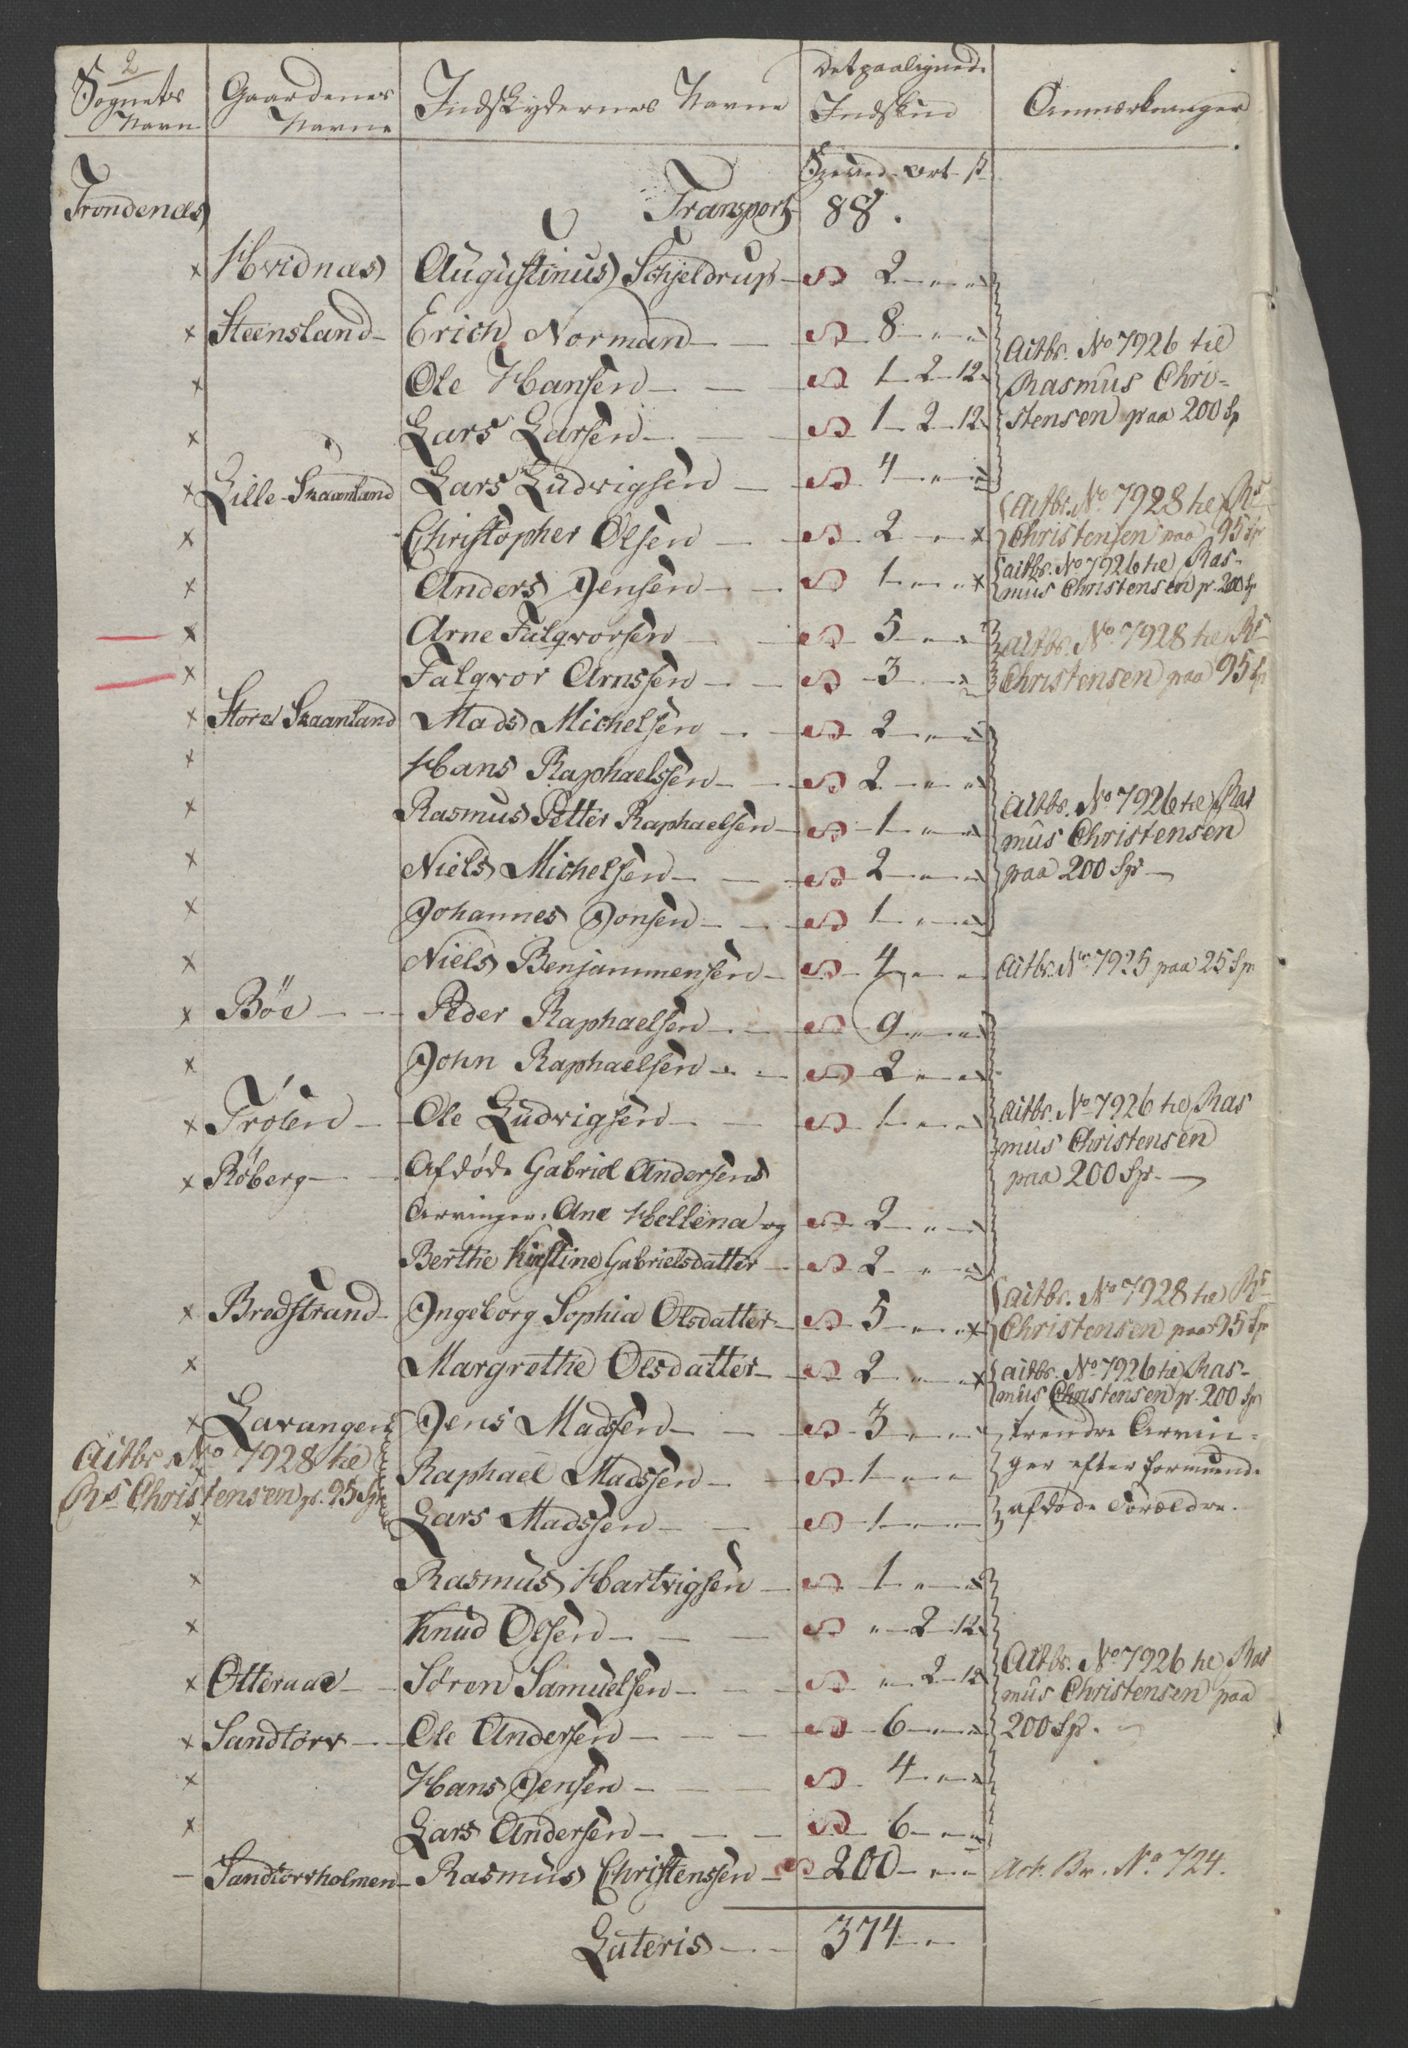 2
Sognets Navn | Gaardenes Navne | Indskydernes Navne | Det paalignede Indskud | Anmærkninger
Specied. Ort. s
Trondenæs | Transport | 88.
x Hvidnæs | Augustinus Schjeldrup | 2 " "
x Steensland | Erich Norman | 8 " " | Aitbr. No 7926 til
x Ole Hansen | 1 2 12 | Rasmus Chri-
x Lars Larsen | 1 2 12 | stensen paa 200 Sp
x Lille Skaanland | Lars Ludvigsen | 4 " "
x Christopher Olsen | 2 " " | Aitbr. No 7928 til Rs Christensen paa 95 Sp
x Anders Jensen | 1 " " | aitbr. No 7926 til Rasmus Christensen p. 200 Sp
x Arne Falqvorsen | 5 " " | Aitbr. No 7928 til Rs
x Falqvor Arnssen | 3 " " | Christensen paa 95 Sp
x Store Skaanland | Mads Michelsen | 2 " "
x Hans Raphaelssen | 2 " " | Aitbr. No 7926 til Ras
x Rasmus Petter Raphaelsen | 1 " " | mus Christensen
x Niels Michelsen | 2 " " | paa 200 Sp.
x Johannes Jonsen | 1 " "
x Niels Benjammensen | 4 " " | Aitbr. No 7925 paa 25 Sp
x Böe | Peder Raphaelsen | 9 " "
x John Raphaelsen | 2 " "
x Trölen | Ole Ludvigsen | 1 " " | Aitbr. No 7926 til Ras
mus Christensen
x Röberg | Afdöde Gabriel Andersens | paa 200 Sp.
Arvinger. Ane Hellena og | 2 " "
Berthe Kirstine Gabrielsdatter | 2 " "
x Bredstrand | Ingeborg Sophia Olsdatter | 5 " " | aitbr. No 7928 til Rs Christensen paa 95 Sp
x Margrethe Olsdatter | 2 " " | aitbr. No 7926 til Rasmus Christensen p. 200 Sp
x Lavangen | Jens Madsen | 3 " " | trendre Arvin-
Aitbr. No 7928 til | Raphael Madssen | 1 " " | ger efter formund.
Rs Christensen p. 95 Sp.
x Lars Madssen | 1 " " | afdöde Forældre.
x Rasmus Hartvigsen | 1 " "
x Knud Olsen | " 2 12
x Otteraae | Sören Samuelsen | " 2 12 | Aitbr. No 7926 til Ras
mus Christensen paa
x Sandtorv | Ole Andersen | 6 " " | 200 Sp.
x Hans Jensen | 4 " "
x Lars Andersen | 6 " "
Sandtorvholmen | Rasmus Christenssen | 200 " " | Act. Br. No 724.
Lateris | 374 " "